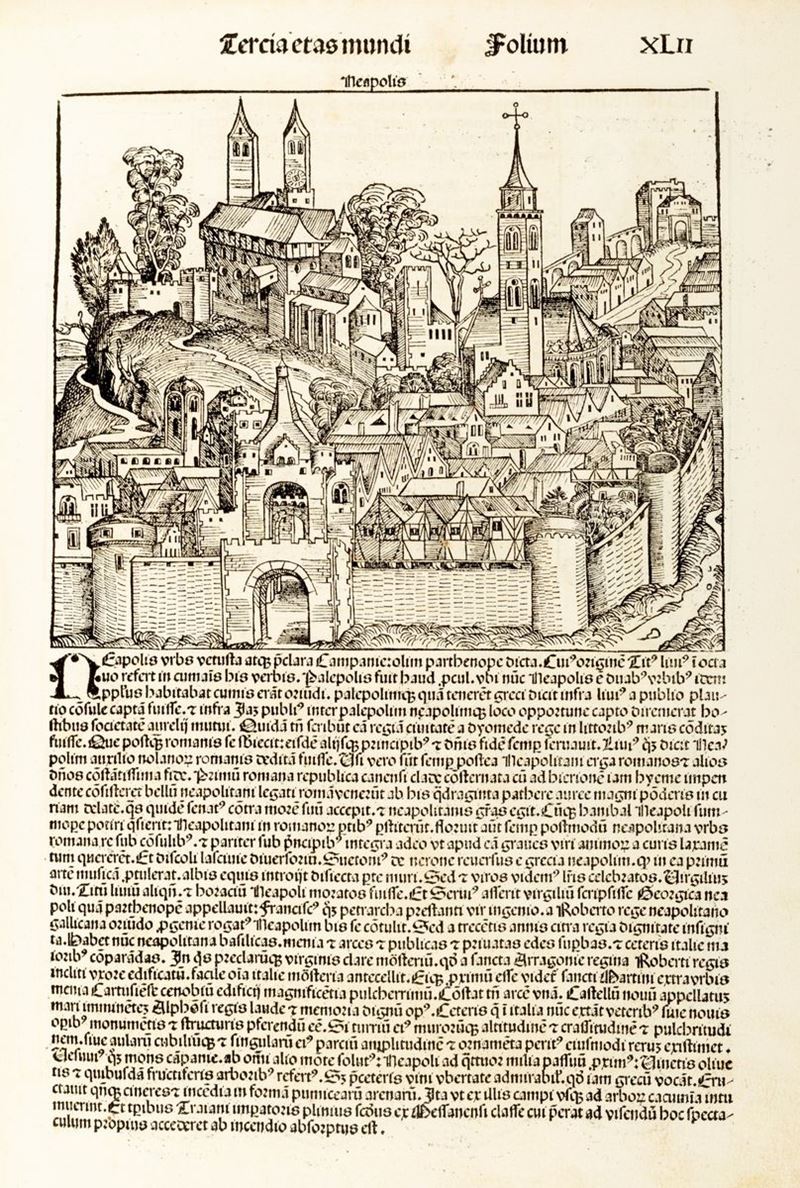 Tercia etas mundi Folium XLII
Neapolis
NEapolis vrbs vetusta atqȝ p̄clara Campanie: olim parthenope dicta. Cuiꝰ originē Titꝰ liuiꝰ ī octa
uo refert in cumaīs his verbis. Palepolis fuit haud ꝓcul. vbi nūc Neapolis ē duabꝰ vrbibꝰ idem
pplūs habitabat cumis erāt oriūdi. palepolimqȝ quā tenerēt greci dicit infra liuiꝰ a publio plau-
tio cōsule captā fuisse. ⁊ infra Jaȝ publiꝰ inter palepolim neapolimqȝ loco opportune capto diremerat ho-
stibus societatē aurelij mutui. Quidā tn̄ scribūt eā regiā ciuitatē a dyomede rege in littoribꝰ maris cōditaȝ
fuisse. Que postqȝ romanis se sbiecit: eisdē alijsqȝ principibꝰ ⁊ dn̄is fidē semꝑ seruauit. Liuiꝰ qȝ dicit Nea
polim auxilio nolanoꝝ romanis deditā fuisse. Usi vero sūt semꝑ postea Neapolitani erga romanos ⁊ alios
dn̄os cōstātissima fide. Primū romana republica canensi clade cōsternata cū ad hierionē iam hyeme impen
dente cōsisteret bellū neapolitani legati romā venerūt ab his q̄draginta pathere auree magni pōderis in cu
riam delate. qs quidē senatꝰ cōtra morē suū accepit. ⁊ neapolitanis gr̄as egit. Cūqȝ hanibal Neapoli sum-
mope potiri q̄sierit: Neapolitani in romanoꝝ ꝑtibꝰ ꝑstiterūt. floruit aūt semꝑ postmodū neapolitana vrbs
romana re sub cōsulibꝰ. ⁊ pariter sub p̄ncipibꝰ integra adeo vt apud eā graues viri animoꝝ a curis laxamē
tum quererēt. Et discoli lasciuie diuersoriū. Suetoniꝰ de nerone reuersus e grecia neapolim. qꝫ in ea primū
artē musicā ꝓtulerat. albis equis introijt disiecta pte muri. Sed ⁊ viros videmꝰ lr̄is celebratos. Virgiliūs
diu. Titū liuiū aliqn̄. ⁊ horaciū Neapoli moratos fuisse. Et Seruiꝰ asserit virgiliū scripsisse Georgica nea
poli quā parthenopē appellauit: francisꝰ qȝ petrarcha prestanti vir ingenio. a Roberto rege neapolitano
gallicana oriūdo ꝓgenie rogatꝰ Neapolim bis se cōtulit. Sed a trecētis annis citra regia dignitate insigni
ta. Habet nūc neapolitana basilicas. menia ⁊ arces ⁊ publicas ⁊ priuatas edes suꝑbas. ⁊ ceteris italie ma
ioribꝰ cōparādas. In q̄s preclarūqȝ virginis clare mōsteriū. qd̄ a sancta Arragonie regina Roberti regis
incliti vxore edificatū. facile oīa italie mōsteria antecellit. Eiqȝ ꝓximū esse videt̄ sancti Martini extra vrbis
menia Cartusiēse cenobiū edificij magnificētia pulcherrimū. Cōstat tn̄ arcē vnā. Castellū nouū appellatuȝ
mari imminētez Alphōsi regis laude ⁊ memoria dignū opꝰ. Ceteris q̄ ī italia nūc extāt veteribꝰ siue nouis
opibꝰ monumētis ⁊ structuris pferendū eē. Si turriū eiꝰ murorūqȝ altitudinē ⁊ crassitudinē ⁊ pulchritudi
nem. siue aularū cubiliūqȝ ⁊ singularū eiꝰ parciū amplitudinē ⁊ ornamēta peritꝰ eiusmodi reruȝ existimet.
Vesuuiꝰ qȝ mons cāpanie. ab om̄i alio mōte solutꝰ: Neapoli ad q̄ttuor milia passuū ꝓximꝰ: Vinetis oliue
tis ⁊ quibusdā fructiferis arboribꝰ refertꝰ. Sȝ p̄ceteris vini vbertate admirabil̄. qd̄ iam grecū vocāt. Eru-
ctauit qn̄qȝ cineres ⁊ incēdia in formā pumicearū arenarū. Ita vt ex illis campi vsqȝ ad arboꝝ cacumīa intu
muerint. Et tꝑibus Traiani impatoris plinius scd̄us ex Messanensi classe cui p̄erat ad visendū hoc specta-
culum propius accederet ab incendio absorptus est.